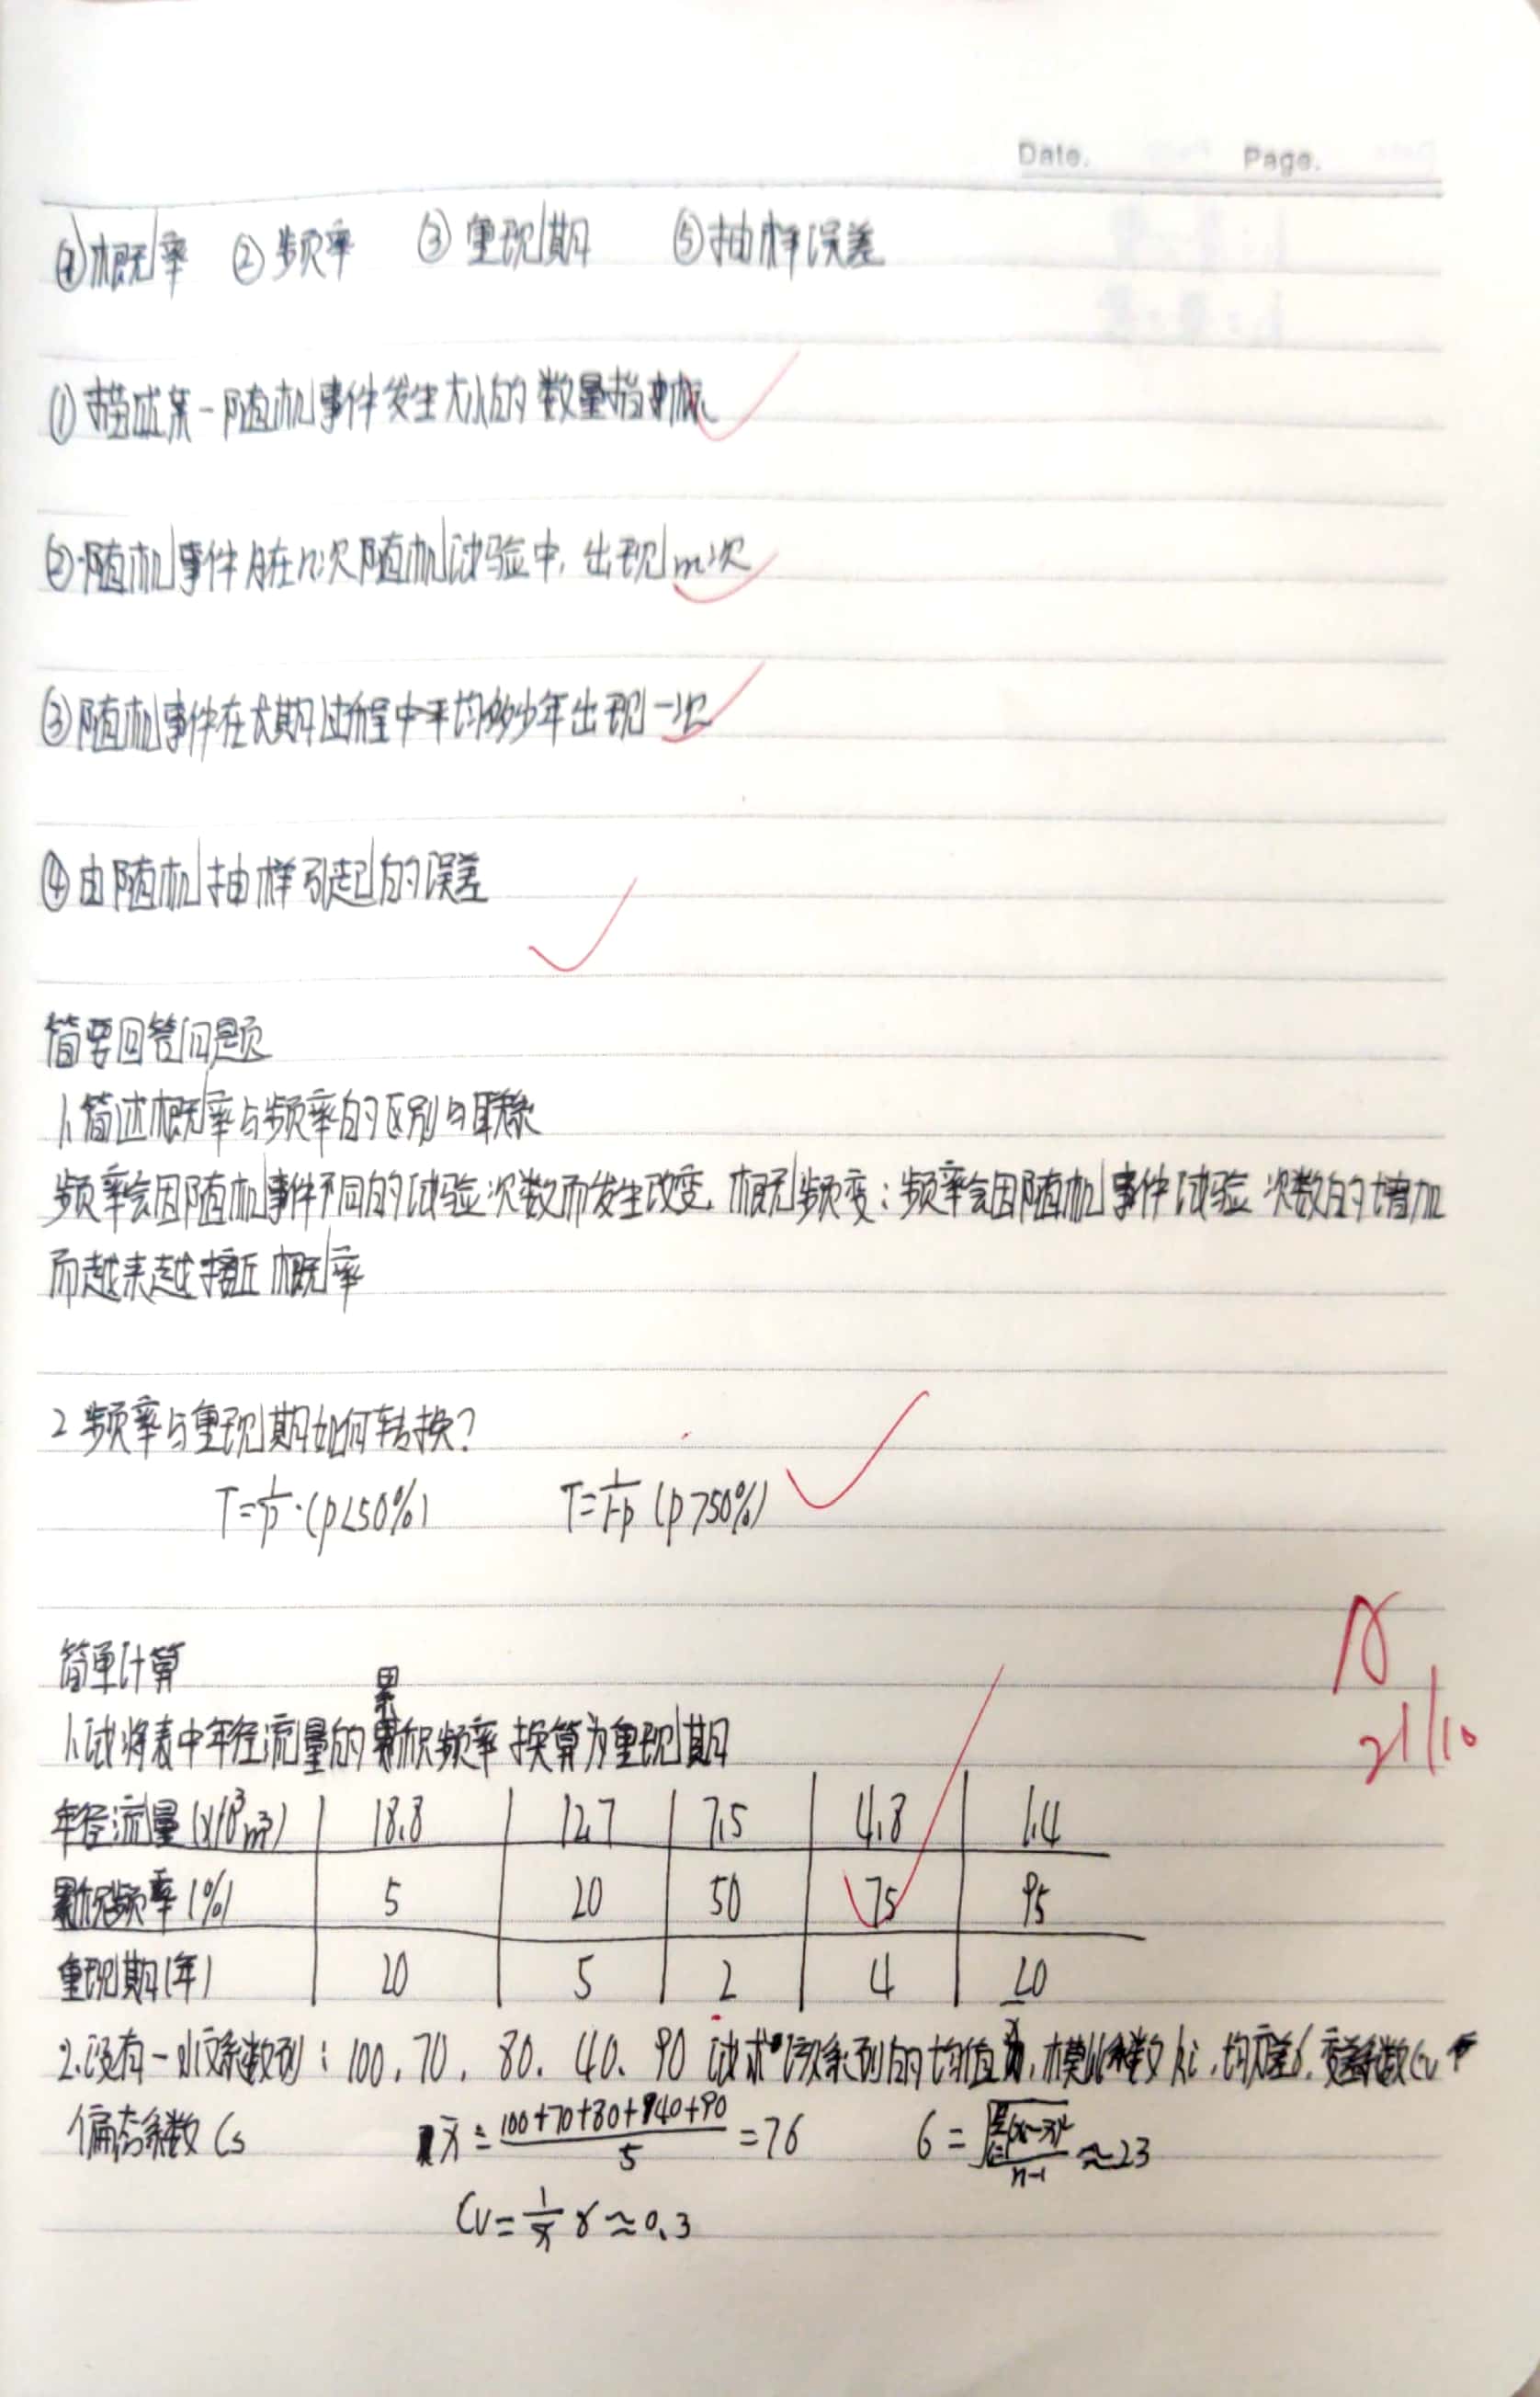 Date. Page.
①概率 ②频率 ③重现期 ⑤抽样误差
①描述某一随机事件发生大小的数量指标
②随机事件A在n次随机试验中,出现m次
③随机事件在长期过程中平均多少年出现一次
④由随机抽样引起的误差
简要回答问题
1.简述概率与频率的区别与联系
频率会因随机事件不同的试验次数而发生改变,概率频变:频率会因随机事件试验次数的增加
而越来越接近概率
2 频率与重现期如何转换?
T=1/p·(p<50%) T=1/1-p (p>50%)
简单计算
累
1.试将表中年径流量的累积频率换算为重现期
年径流量(×10³m³) 18.8 12.7 7.5 4.8 1.4
累积频率(%) 5 20 50 75 95
重现期(年) 20 5 2 4 20
21/10
2.设有一水文系数列:100,70,80,40、90试求该系列的均值x̄,模比系数ki,均方差б,变差系数Cv
偏态系数Cs x̄=100+70+80+40+90/5=76 б=√Σ(x-x̄)²/n-1≈23
Cv=1/x̄ 8≈0.3